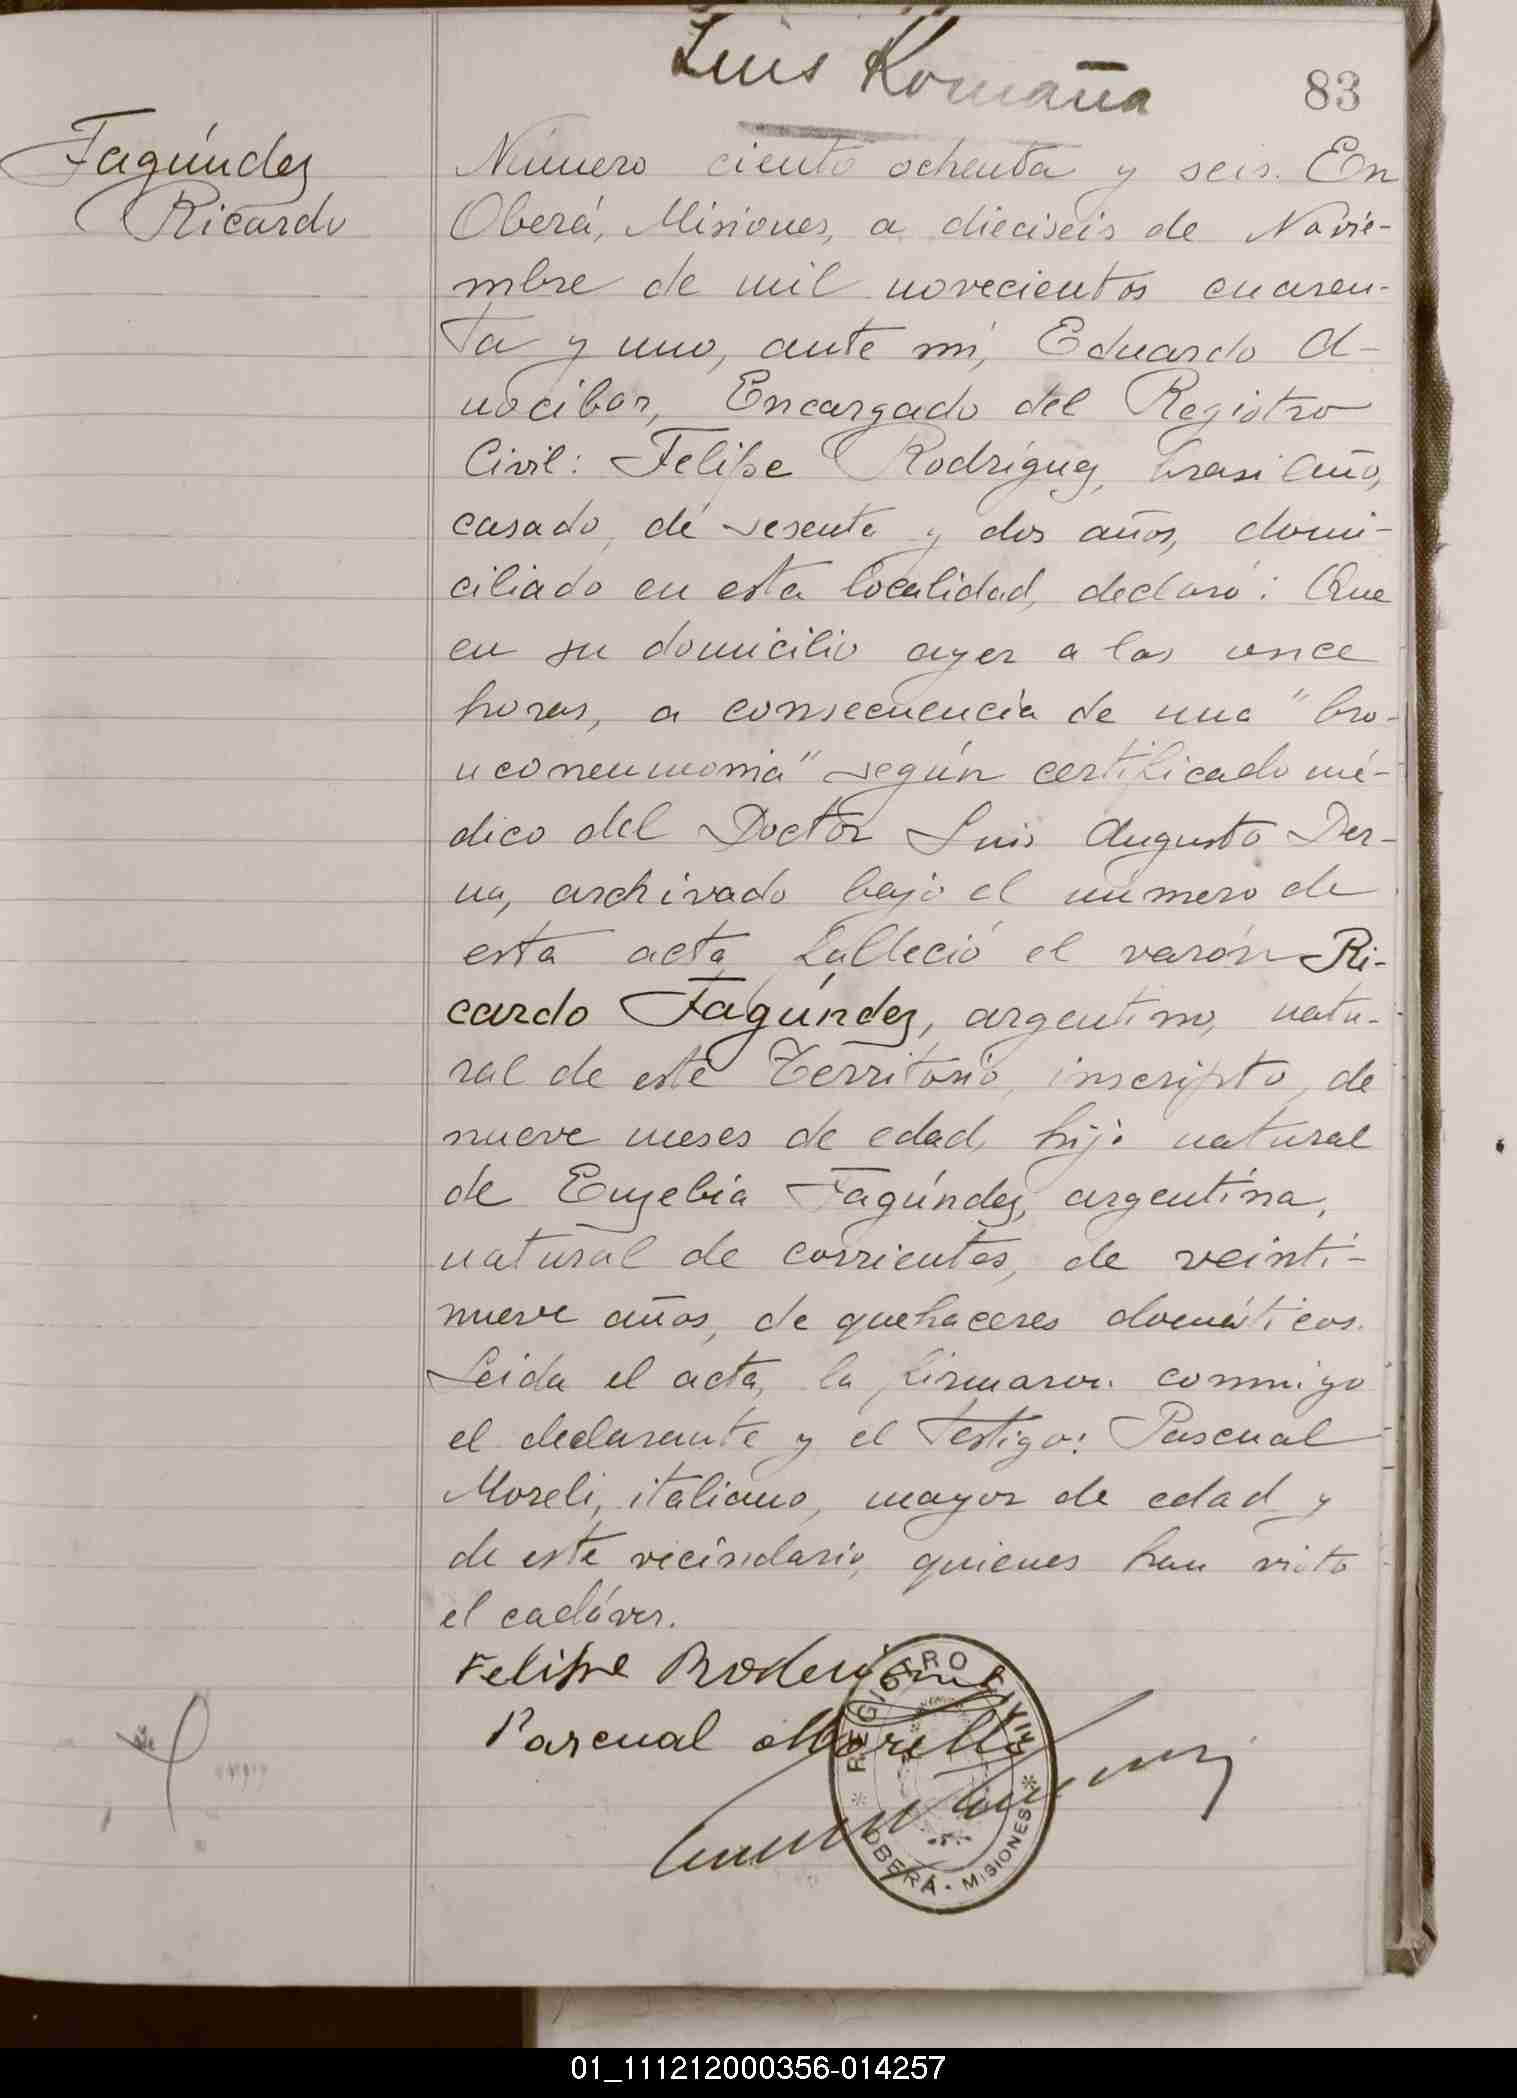 Luis Romaña
83
Fagúndez
Ricardo
Número ciento ochenta y seis. En
Oberá, Misiones, a dieciseis de Novie-
mbre de mil novecientos cuaren-
ta y uno, ante mí, Eduardo A-
nocibar, Encargado del Registro
Civil: Felipe Rodríguez, brasileño,
casado, de sesenta y dos años, domi-
ciliado en esta localidad, declaró: Que
en su domicilio ayer a las once
horas, a consecuencia de una "bro-
nconeumonia" según certificado mé-
dico del Doctor Luis Augusto Der-
na, archivado bajo el número de
esta acta falleció el varón Ri-
cardo Fagúndez, argentino, natu-
ral de este Territorio, inscripto, de
nueve meses de edad, hijo natural
de Euzebia Fagúndez, argentina,
natural de corrientes, de veinti-
nueve años, de quehaceres domésticos.
Leida el acta, la firmaron conmigo
el declarante y el testigo: Pascual
Moreli, italiano, mayor de edad y
de este vecindario, quienes han visto
el cadáver.
Felipe Rodriguez
Pascual Morelli
REGISTRO CIVIL
OBERÁ - MISIONES
01_111212000356-014257